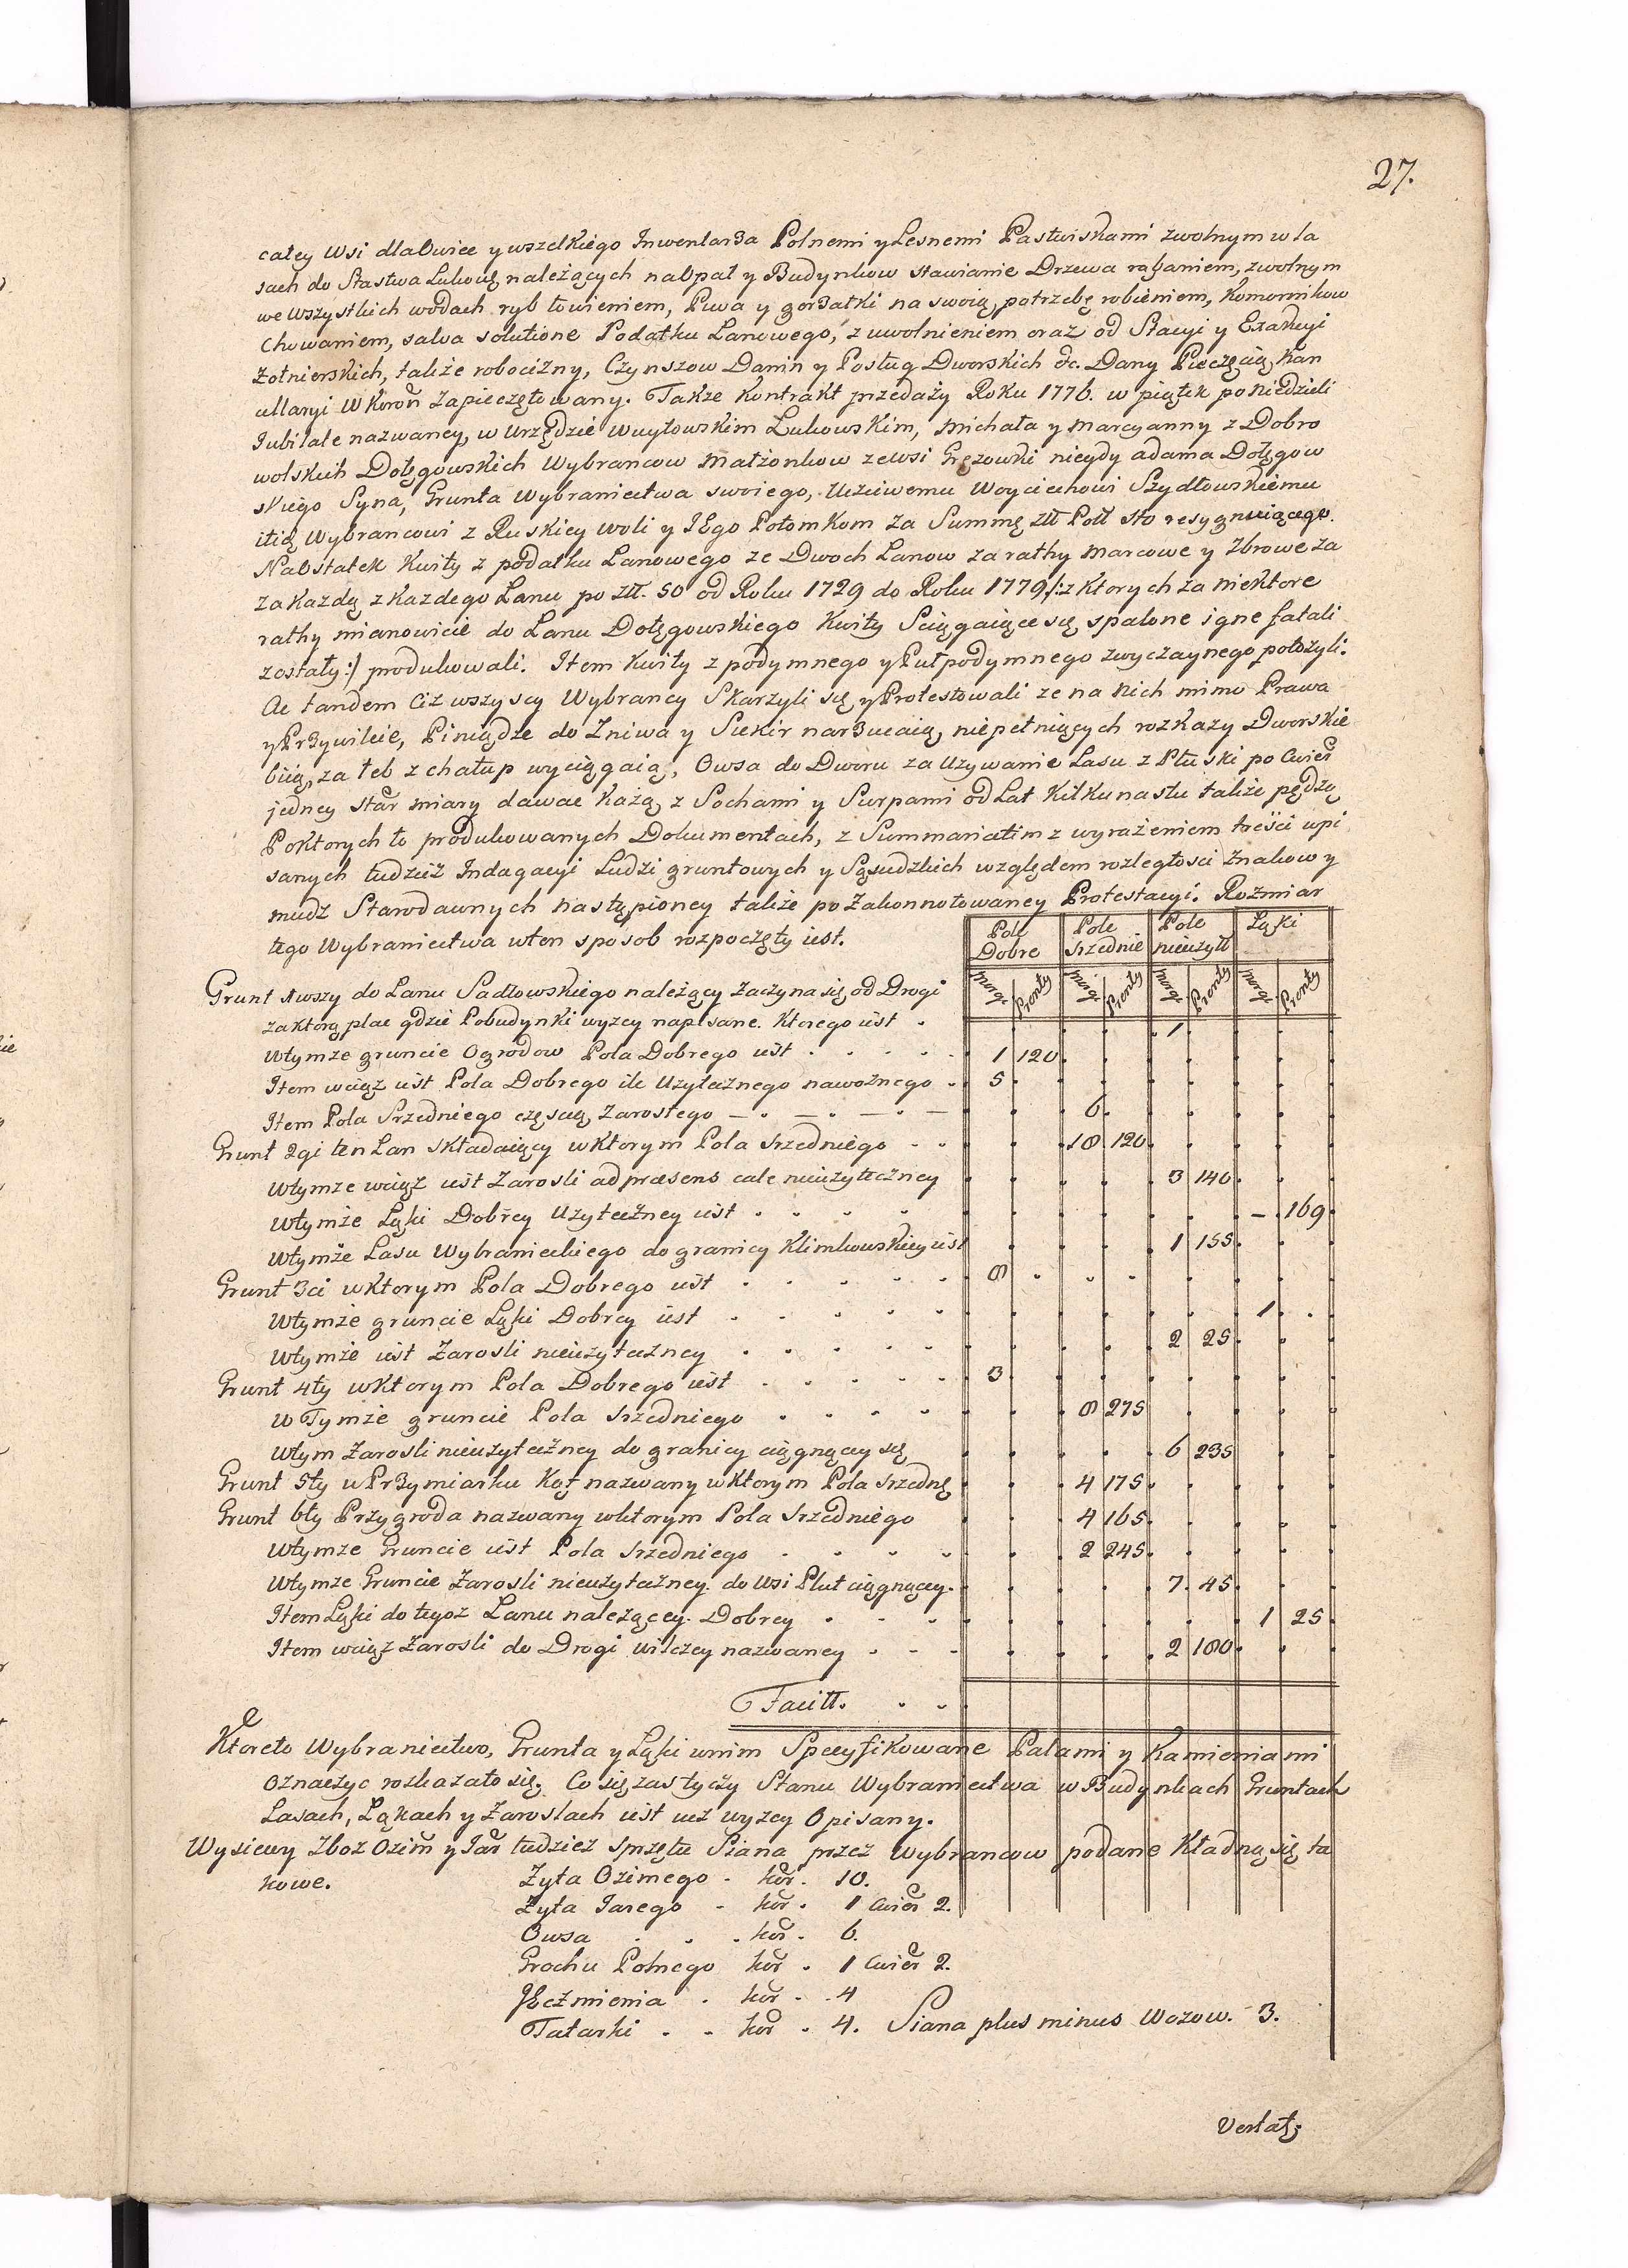 27.
całey Wsi dla Owiec y wszelkiego Inwentarza Polnemi y Lesnemi Pastwiskami zwolnym w la
sach do Stastwa Lukowę należących na Opał y Budynkow stawianie Drzewa rąbaniem, zwolnym
we Wszystkich wodach ryb łowieniem, Piwa y gorzałki na swoią potrzebę robieniem, Komornikow
Chowaniem, salva solutione Podatku Lanowego, z uwolnieniem oraz od Stacyi y Exakcyi
Żołnierskich, także robocizny, Czynszow Danin y Posług Dworskich &c. Dany Pieczęcią Kan
cellaryi W Koroñ Zapieczętowany. Także Kontrakt przedaży Roku 1776. w piątek po Niedzieli
Jubilate nazwaney, w Urzędzie Wuytowskim Lukowskim, Michała y Marcyanny z Dobro
wolskich Dołęgowskich Wybrancow Małżonkow ze Wsi Gręzowki niegdy adama Dołęgow
skiego Syna, Grunta Wybraniectwa swoiego, Uczciwemu Woyciechowi Szydłowskiemu
itię Wybrancowi z Ruskiey Woli y JEgo Potomkom za Summę Złł Poll sto resygnuiącego.
Na Ostatek Kwity z podatku Lanowego ze Dwoch Lanow za rathy Marcowe y 7browe za
za Kazdą z Kazdego Lanu po złł. 50 od Roku 1729 do Roku 1779 /: z ktorych za niektore
rathy mianowicie do Lanu Dołęgowskiego Kwity Sciągaiące się spalone igne fatali
zostały :/ produkowali. Item Kwity z podymnego y Pułpodymnego zwyczaynego położyli.
Ac tandem Ciż wszyscy Wybrancy Skarzyli się y Protestowali ze na Nich mimo Prawa
y Przywileie, Piniądze do Zniwa y Siekir narzucaią, niepełniących rozkazy Dworskie
biią, za łeb z chałup wyciągaią, Owsa do Dworu za Uzywanie Lasu z Płuski po Cwier
jedney Star miary dawac Każą, z Sochami y Surpami od Lat Kilkunastu także pędzą
Po Ktorych to produkowanych Dokumentach, z Summariatim z wyrażeniem treści wpi
sanych tudzież Indagacyi Ludzi gruntowych y Sąsiedzkich względem rozległości Znakow y
miedz Starodawnych nastąpioney także po Zakonnotowaney Protestacyi. Rozmiar
tego Wybraniectwa w ten sposob rozpoczęty iest.
Pole Dobre Pole Srzednie Pole nieuzytt Łąki
Morgi Pronty Morgi Pronty Morgi Pronty Morgi Pronty
Grunt 1wszy do Lanu Sadłowskiego należący Zaczyna się od Drogi
za ktorą plac gdzie Pobudynki wyzey napisane. Ktorego iest . 1
W tymze gruncie Ogrodow Pola Dobrego iest . . . . . 1 120
Item wciąż iest Pola Dobrego ile Uzytecznego nawoznego . 5
Item Pola Srzedniego częscią Zarosłego — . — . — . — 6
Grunt 2gi ten Lan składaiący w Ktorym Pola srzedniego . . 18 120
W tymze wciąż iest Zarosli ad præsens całe nieużyteczney 3 140
W tymże Łąki Dobrey Uzyteczney iest . . . . — 169
W tymże Lasu Wybranieckiego do granicy Klimkowskiey iest 1 155
Grunt 3ci w ktorym Pola Dobrego iest . . . . . 8
W tymże gruncie Łąki Dobrey iest . . . . . 1
W tymże iest Zarosli nieuzyteczney . . . . . 2 25
Grunt 4ty w Ktorym Pola Dobrego iest . . . . . 3
W Tymże gruncie Pola srzedniego . . . . 8 275
W tym Zarosli nieuzyteczney do granicy ciągnącey się 6 235
Grunt 5ty w Przymiarku Kąt nazwany w Ktorym Pola srzednę 4 175
Grunt 6ty Przygroda nazwany w ktorym Pola srzedniego 4 165
W tymze Gruncie iest Pola srzedniego . . . . 2 245
W tymze Gruncie Zarosli nieuzyteczney do Wsi Plut ciągnącey. 7 45
Item Łąki do tegoz Lanu nalezącey. Dobrey . . . 1 25
Item wciąż Zarosli do Drogi wilczey nazwaney . . . 2 180
Facitt. . .
Ktoreto Wybraniectwo, Grunta y Łąki w nim Specyfikowane Palami y Kamieniami
Oznaczyc rozkazało się. Co się zas tyczy Stanu Wybraniectwa w Budynkach Gruntach
Lasach, Łąkach y Zaroslach iest uż wyzey Opisany.
Wysiewy Zboz Ozim y Jar tudziez sprzętu Siana przez Wybrancow podane Kładną się ta
kowe. Zyta Ozimego . kor. 10.
Zyta Jarego . kor . 1 Cwier 2.
Owsa . . . kor . 6.
Grochu Polnego kor . 1 Cwier 2.
JEczmienia . kor . . 4
Tatarki . . kor . 4. Siana plus minus Wozow. 3.
Vertatę